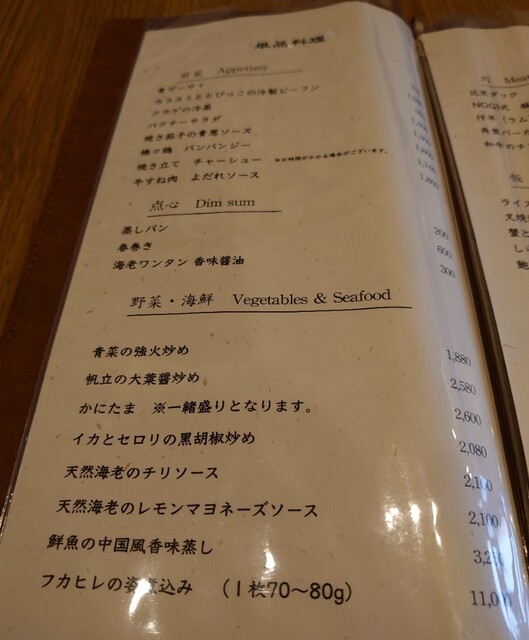 単品料理
前菜 Appetizer
青ザーサイ
カラスミととびっこの冷製ビーフン
クラゲの冷菜
パクチーサラダ
焼き茄子の青葱ソース
棒々鶏 バンバンジー
焼き立て チャーシュー ※お時間がかかる場合がございます。 1,700
牛すね肉 よだれソース 1,800
点心 Dim sum
蒸しパン 200
春巻き 600
海老ワンタン 香味醤油 300
野菜・海鮮 Vegetables & Seafood
青菜の強火炒め 1,880
帆立の大葉醤炒め 2,580
かにたま ※一緒盛りとなります。 2,600
イカとセロリの黒胡椒炒め 2,080
天然海老のチリソース 2,100
天然海老のレモンマヨネーズソース 2,100
鮮魚の中国風香味蒸し
フカヒレの姿煮込み (1枚70〜80g)
肉 Meat
北京ダック
NOGI式
仔羊（ラム
角煮バー
和牛のチ
飯
ライス
叉焼
蟹と
しら
鮑